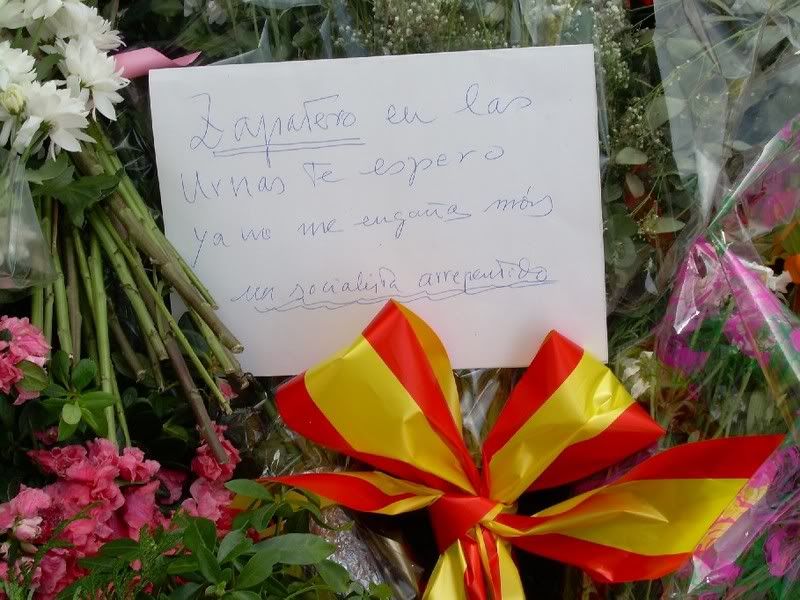 Zapatero en las
Urnas te espero
ya no me engañas más
un socialista arrepentido